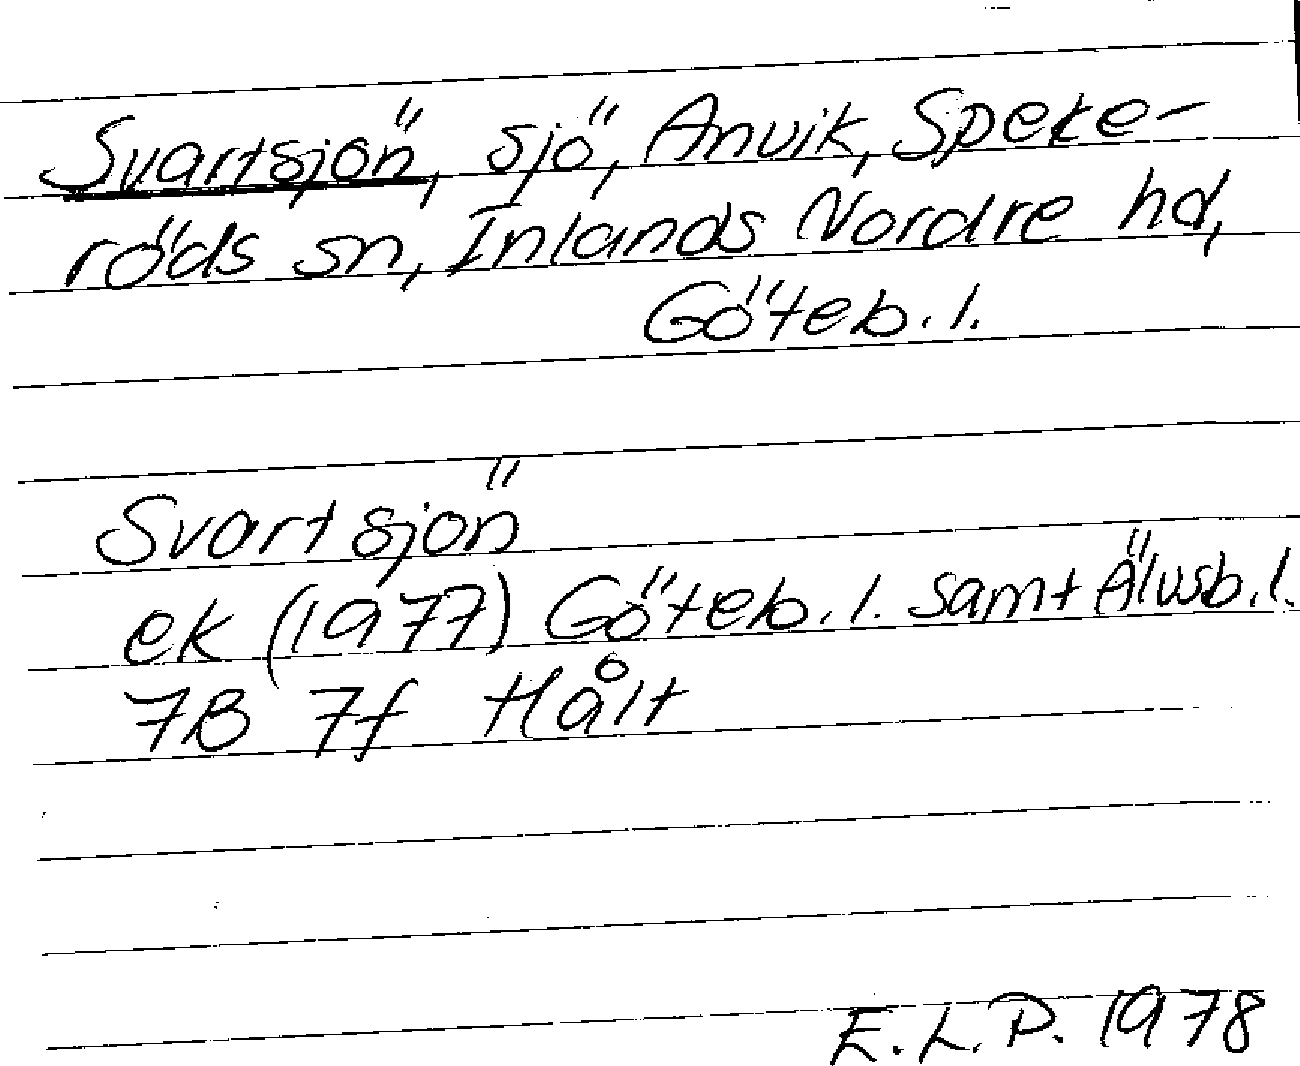 Svartsjön, sjö, Anvik, Speke-
röds sn, Inlands Nordre hd,
Göteb. l.
Svartsjön
ek (1977) Göteb. l. samt Älvsb. l.
7B 7f Hålt
E. L. P. 1978